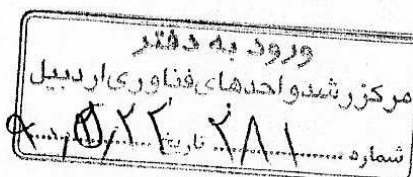 ورود به دفتر
مرکز رشد واحدهای فناوری اردبیل
شماره ۲۸۱ تاریخ